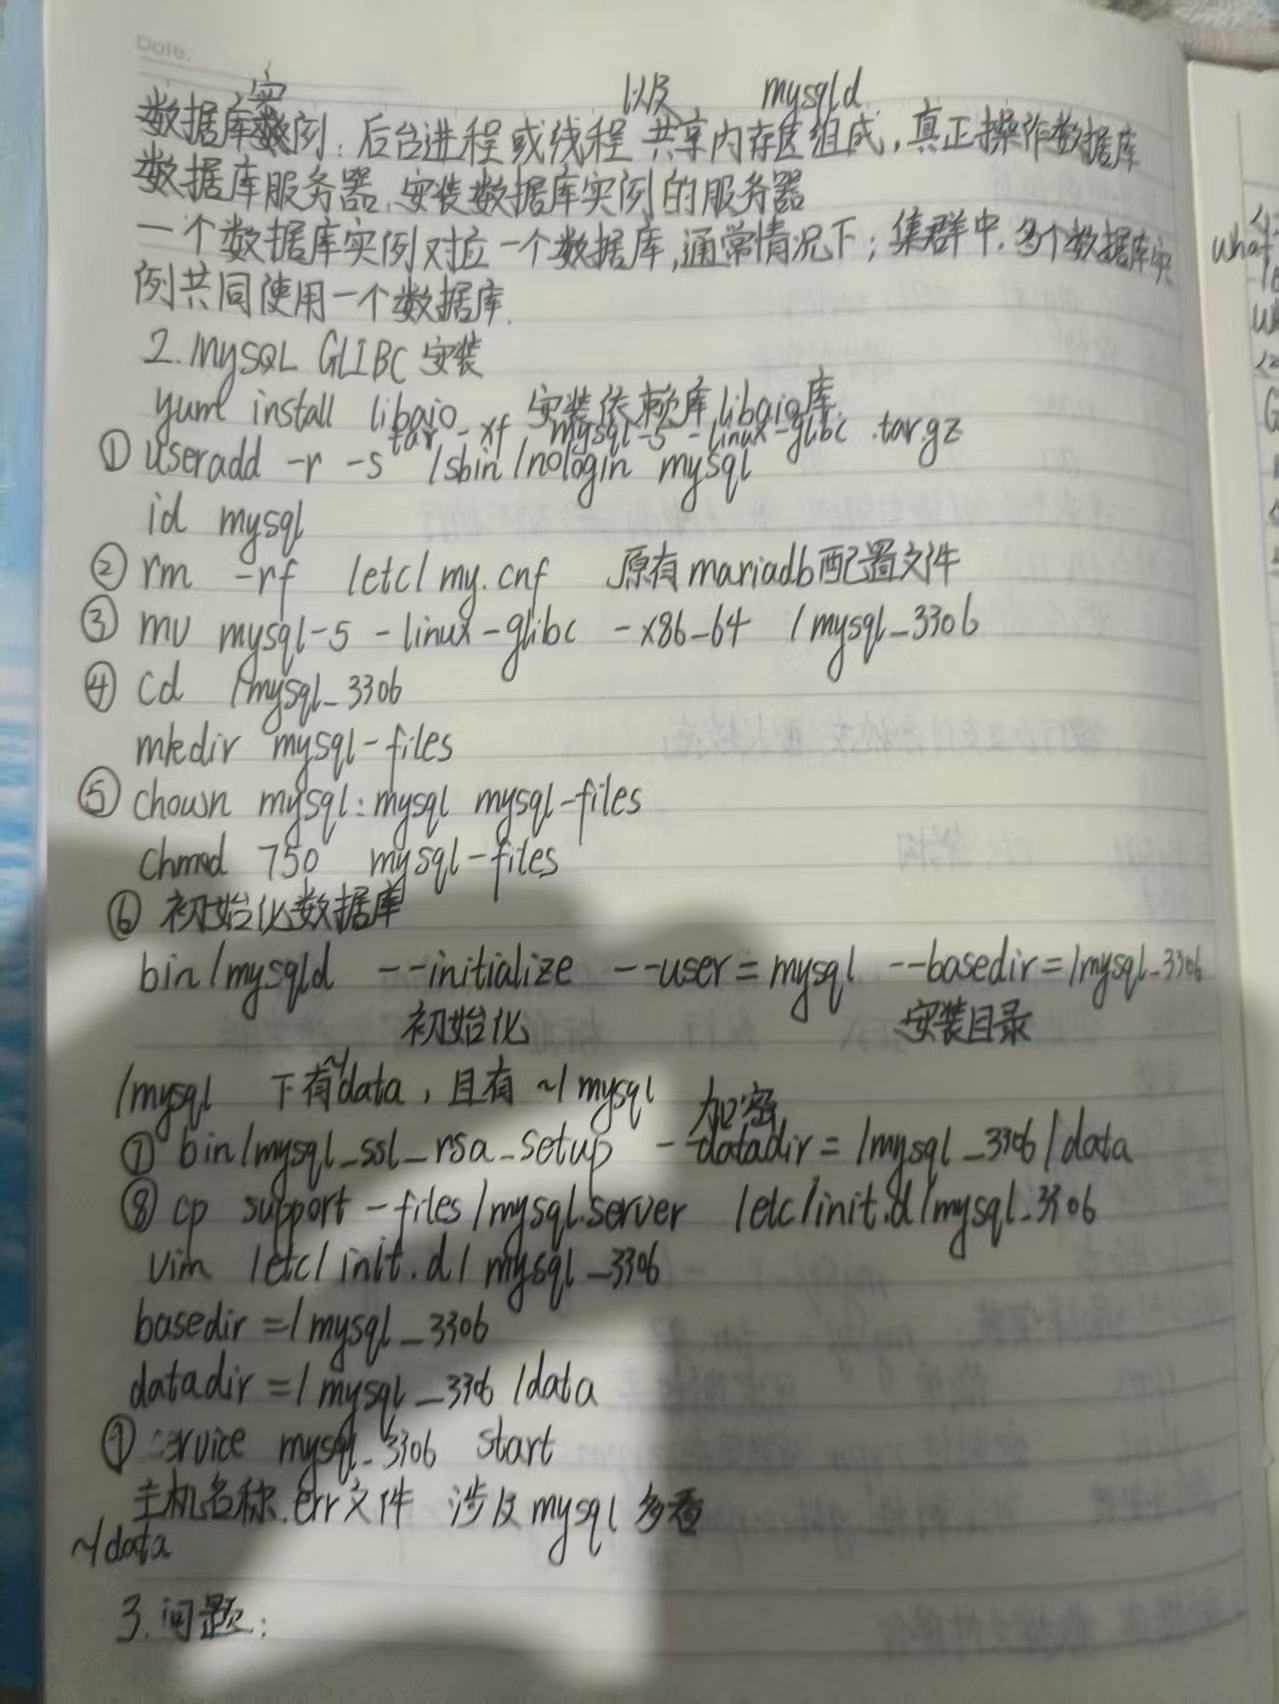 Date.
实 以及 mysqld
数据库实例：后台进程或线程 共享内存区组成，真正操作数据库
数据库服务器，安装数据库实例的服务器
一个数据库实例对应一个数据库，通常情况下；集群中，多个数据库实
例共同使用一个数据库.
2. MySQL GLIBC 安装
yum install libaio 安装依赖库libaio库
tar -xf mysql-5 -linux-glibc .tar.gz
① useradd -r -s /sbin/nologin mysql
id mysql
② rm -rf /etc/my.cnf 原有mariadb配置文件
③ mv mysql-5 -linux-glibc -x86-64 /mysql_3306
④ cd /mysql_3306
mkdir mysql-files
⑤ chown mysql:mysql mysql-files
chmod 750 mysql-files
⑥ 初始化数据库
bin/mysqld --initialize --user=mysql --basedir=/mysql_3306
初始化 安装目录
/mysql 下有~/data，且有 ~/mysql 加密
⑦ bin/mysql_ssl_rsa_setup --datadir=/mysql_3306/data
⑧ cp support-files/mysql.server /etc/init.d/mysql_3306
vim /etc/init.d/mysql_3306
basedir=/mysql_3306
datadir=/mysql_3306/data
⑨ service mysql_3306 start
主机名称.err文件 涉及mysql 多看
~/data
3.问题：
what